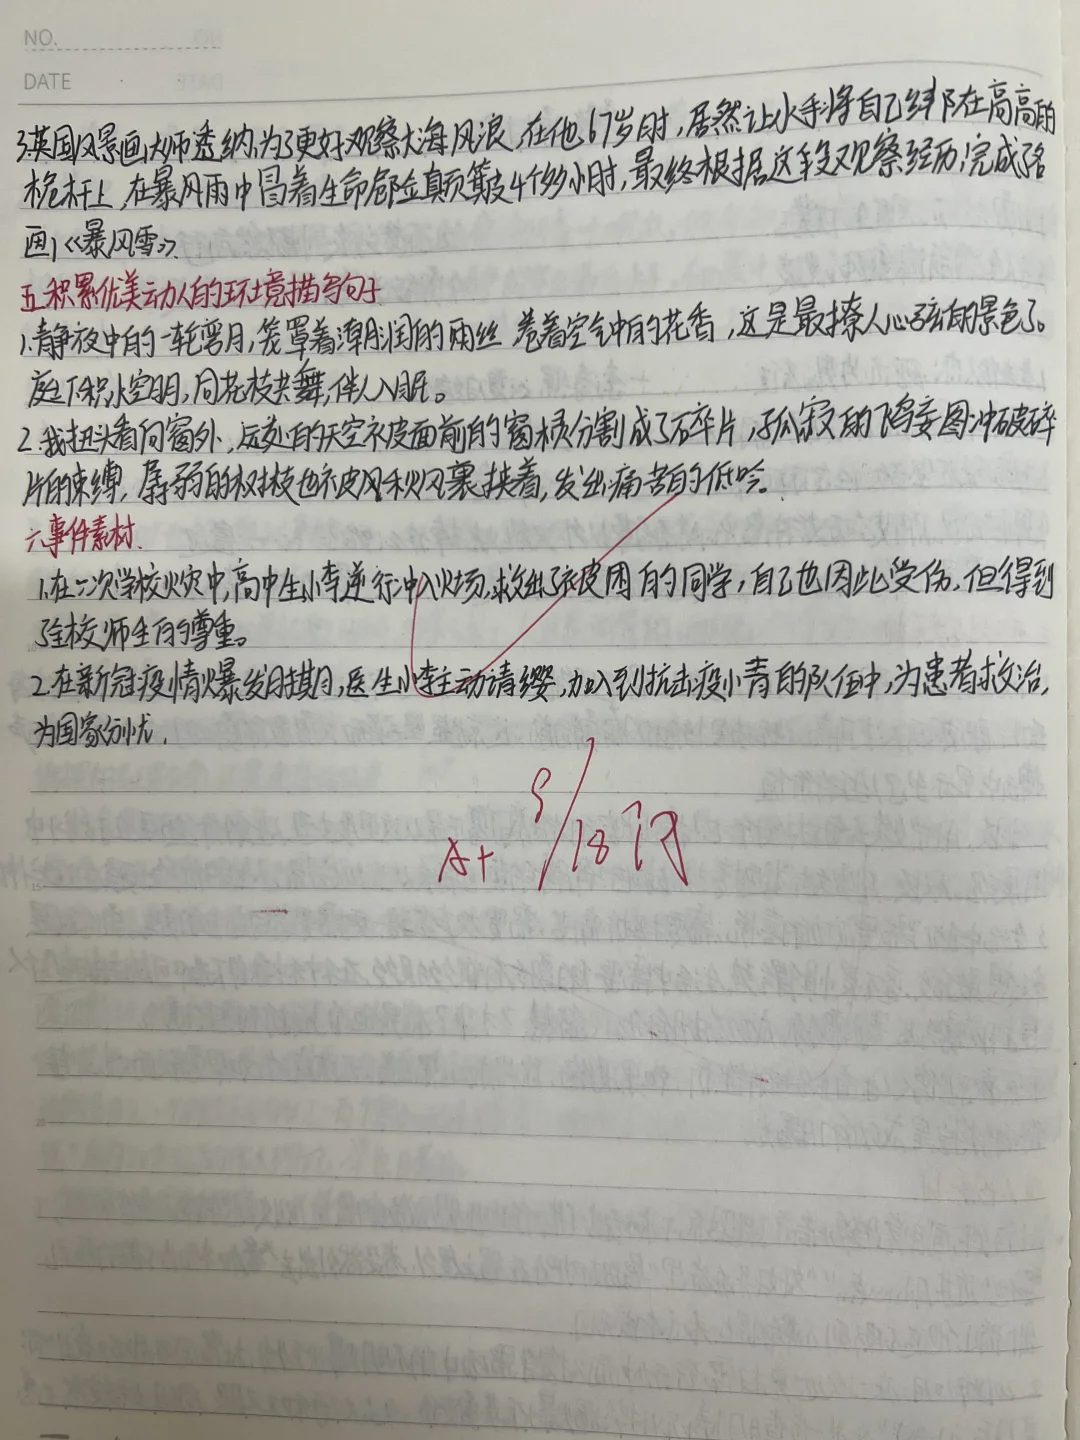 NO.
DATE
3.英国风景画大师透纳,为了更好观察大海风浪,在他67岁时,居然让水手将自己绑在高高的
桅杆上,在暴风雨中冒着生命危险颠簸4个多小时,最终根据这段观察经历,完成了名
画《暴风雪》.
五.积累优美动人的环境描写句子
1.静夜中的一轮弯月,笼罩着潮润的雨丝 卷着空气中的花香,这是最撩人心弦的景色了。
庭下积水空明,同花枝共舞,伴人入眠。
2.我扭头看向窗外,远处的天空被面前的窗棂分割成了碎片,孤寂的飞鸟妄图冲破碎
片的束缚,孱弱的树枝也被风秋风裹挟着,发出痛苦的低吟。
六.事件素材.
1.在一次学校火灾中,高中生小李逆行冲入火场,救出了被困的同学,自己也因此受伤.但得到
了全校师生的尊重。
2.在新冠疫情爆发期间,医生小李主动请缨,加入到抗击疫小青的队伍中,为患者救治,
为国家分忧.
A+ 9/18